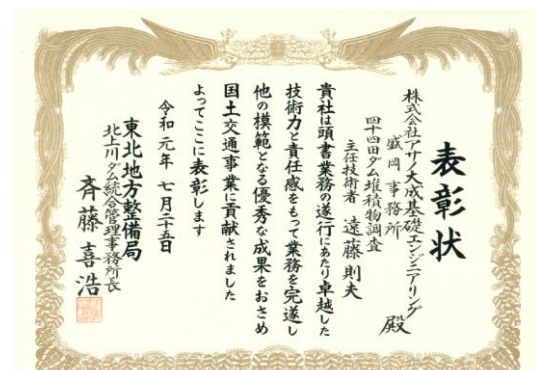 表彰状
株式会社アサノ大成基礎エンジニアリング
盛岡事務所
殿
四十四田ダム堆積物調査
主任技術者 遠藤則夫
貴社は頭書業務の遂行にあたり卓越した
技術力と責任感をもって業務を完遂し
他の模範となる優秀な成果をおさめ
国土交通事業に貢献されました
よってここに表彰します
令和元年 七月二十五日
東北地方整備局
北上川ダム統合管理事務所長
斉藤喜浩